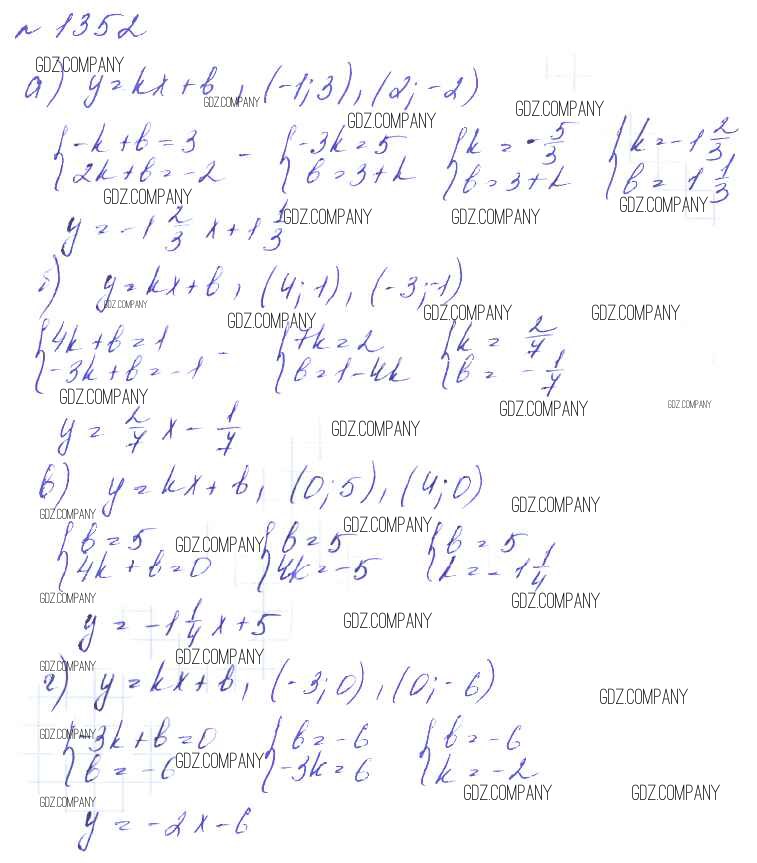 № 1352
GDZ.COMPANY
а) y = kx + b, (-1; 3), (2; -2)
GDZ.COMPANY GDZ.COMPANY
GDZ.COMPANY
{ -k + b = 3 - { -3k = 5 { k = -5/3 { k = -1 2/3
{ 2k + b = -2 { b = 3 + k { b = 3 + k { b = 1 1/3
GDZ.COMPANY GDZ.COMPANY
GDZ.COMPANY GDZ.COMPANY
y = -1 2/3 x + 1 1/3
б) y = kx + b, (4; 1), (-3; -1)
GDZ.COMPANY GDZ.COMPANY GDZ.COMPANY GDZ.COMPANY
{ 4k + b = 1 - { 7k = 2 { k = 2/7
{ -3k + b = -1 { b = 1 - 4k { b = -1/7
GDZ.COMPANY GDZ.COMPANY GDZ.COMPANY
y = 2/7 x - 1/7
GDZ.COMPANY
в) y = kx + b, (0; 5), (4; 0)
GDZ.COMPANY GDZ.COMPANY GDZ.COMPANY
{ b = 5 { b = 5 { b = 5
GDZ.COMPANY
{ 4k + b = 0 { 4k = -5 { k = -1 1/4
GDZ.COMPANY GDZ.COMPANY
y = -1 1/4 x + 5
GDZ.COMPANY
GDZ.COMPANY GDZ.COMPANY
г) y = kx + b, (-3; 0), (0; -6)
GDZ.COMPANY
{ -3k + b = 0 { b = -6 { b = -6
GDZ.COMPANY
{ b = -6 { -3k = 6 { k = -2
GDZ.COMPANY GDZ.COMPANY GDZ.COMPANY
GDZ.COMPANY
y = -2x - 6